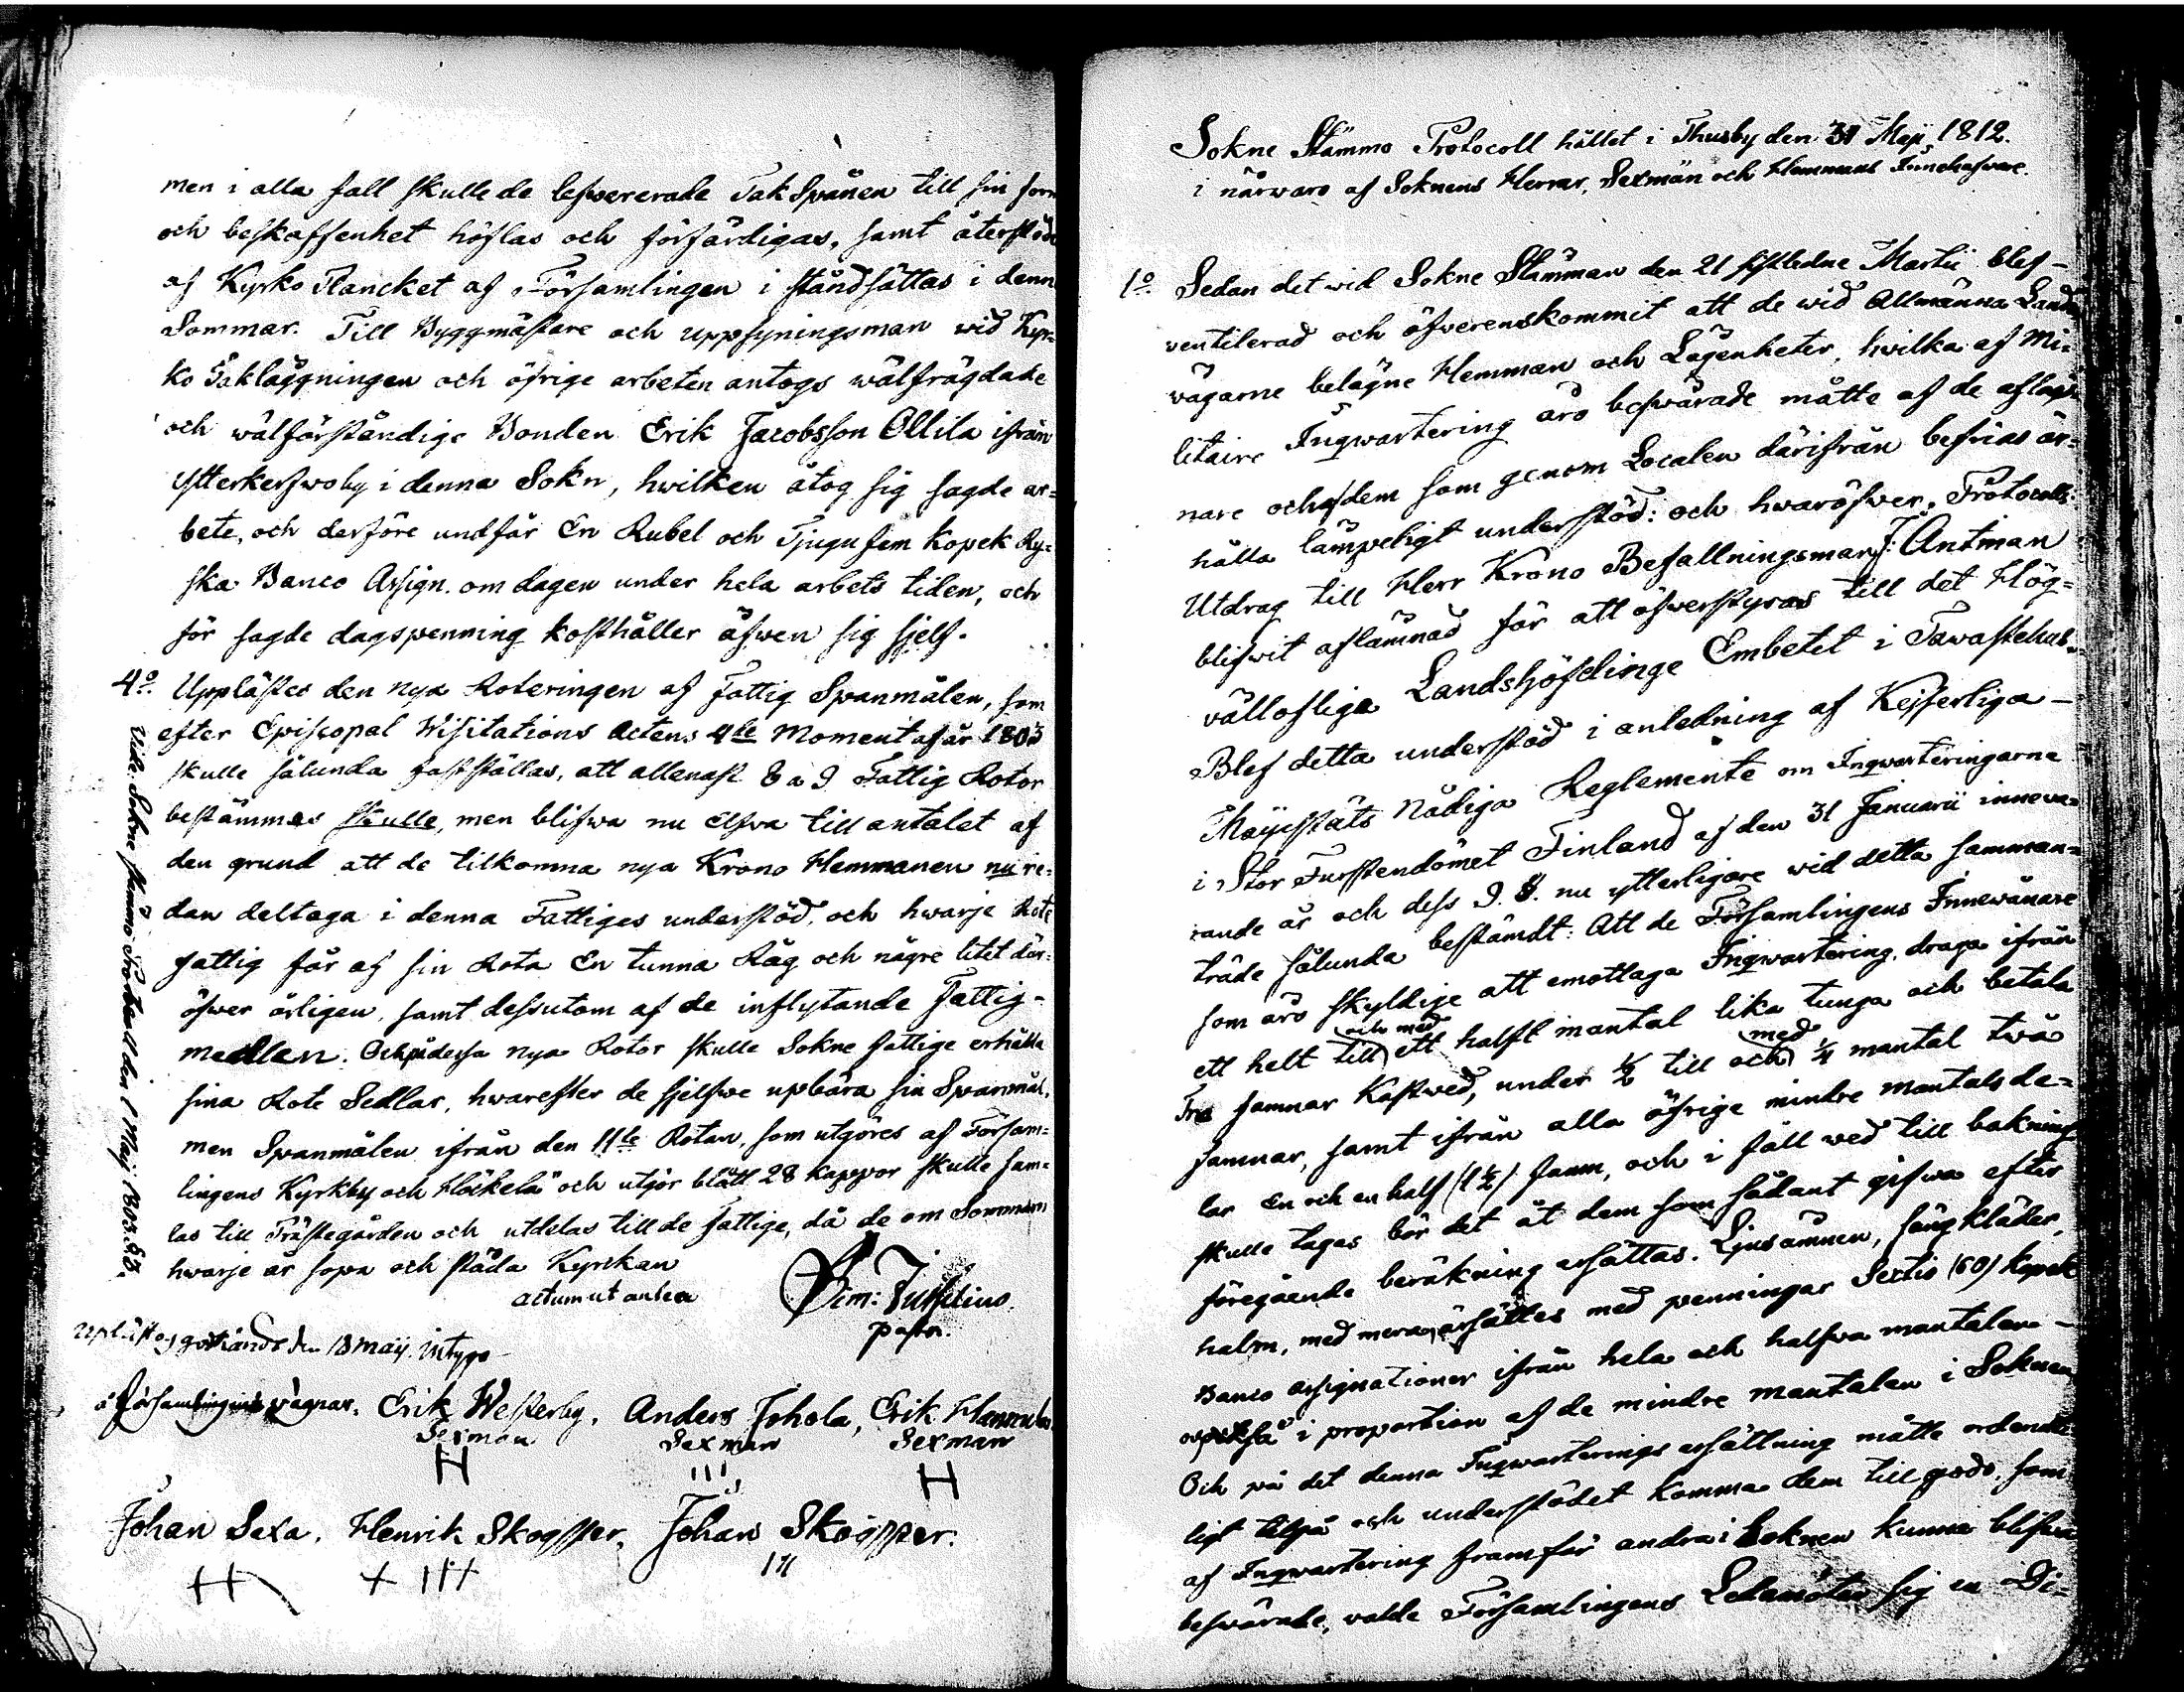 men i alla fall skulle de lefwererade TakSpånen till sin form
och beskaffenhet höflas och förfärdigas, samt återstöde
af Kyrko Plancket af Församlingen i ståndsättas i denn
Sommar. Till Byggmästare och uppsyningsman wid Kyr=
ko Takläggningen och öfrige arbeten antogs wälfrägdade
och wälförståndige Bonden Erik Jacobsson Ollila ifrån
Ytterkerswoby i denna Sokn, hwilken åtog sig sagde ar=
bete, och derföre undfår En Rubel och Tjugufem kopek Ry=
ska Banco Assign. om dagen under hela arbets tiden, och
för sagde dagspenning kosthåller äfwen sig sjelf.
4o. Upplästes den nya Roteringen af Fattig Spanmålen, som
efter Episcopal Wisitations Actens 4te Moment af år 1803
skulle sålunda fastställas, att allenast 8 a 9 Fattig Rotor
bestämmas skulle, men blifwa nu elfwa till antalet af
den grund att de tilkomna nya Krono Hemmanen nu re=
dan deltaga i denna Fattiges understöd, och hwarje Rote
fattig får af sin Rota En tunna Råg och någre litet där=
öfwer årligen, samt dessutom af de inflytande Fattig-
medlen. Och på dessa nya Rotor skulle Sokne fattige erhålla
sina Rote Sedlar, hwarefter de sjelfwe upbära sin Spanmål,
men Spanmålen ifrån den 11te Rotan, som utgöres af Försam=
lingens Kyrkby och Höckelä och utgör blått 28 kappor skulle sam=
las till Prästegården och utdelas till de fattige, då de om Sommaren
hwarje år sopa och städa Kyrkan
actum ut antea
Sim: Jusselius.
pastor.
Vide. Sokne stämmo Protocoll den 1 Maij 1803. §3.
Upläst och godkändt den 13 maij. intyga
å församlingens wägnar. Erik Westerby, Anders Johola, Erik Hannula
Sexman Sexman Sexman
Johan Saxa, Henrik Skogster, Johan Skogster.
Sokne Stämmo Protocoll hållet i Thusby den 31 Maij 1812.
i närwaro af Soknens Herrar, Sexmän och Hemmans Innehafware.
1o. Sedan det wid Sokne Stämman den 21 sistledne Martii blef-
ventilerad och öfwerenskommit att de wid Allmänna Lands
vägarne belägne Hemman och Lägenheter, hwilka af Mi=
litaire Inqwartering äro beswärade måtte af de aflägs
nare och af dem som genom Localen därifrån befrias är=
hålla lämpeligt understöd: och hwaröfwer Protocolls
Utdrag till Herr Krono Befallningsman J: Antman
blifwit aflämnad för att öfwerstyras till det Hög=
vällofliga Landshöfdinge Embetet i Tawastehus.
Blef detta understöd i anledning af Kejserliga -
Maijestäts Nådiga Reglemente om Inqwarteringarne
i Stor Furstendömet Finland af den 31 Januarii inneva=
rande år och dess 9. §. nu ytterligare wid detta samman=
träde sålunda bestämdt: Att de Församlingens Innewånare
som äro skyldige att emottaga Inqwartering, draga ifrån
ett helt till och med ett halft mantal lika tunga och betala
Tre famnar Kastwed, under ½ till och med ¼ mantal twå
famnar, samt ifrån alla öfrige mindre mantals de=
lar En och en half (1½) famn, och i fall wed till bakning
skulle tagas bör det åt dem som sådant gifwa efter
föregående beräkning ersättas. Ljusämnen, sängkläder,
halm, med mera, ersättes med penningar Sextio (60) kopek
Banco assignationer ifrån hela och halfwa mantalen -
också i proportion af de mindre mantalen i Soknen
Och på det denna Inqwarterings ersättning måtte ordente=
ligt tilgå och understödet komma dem till godo, som
af Inqwartering framför andra i Soknen kunna blifwa
beswärade, walde Församlingens Ledamöter sig en Di=